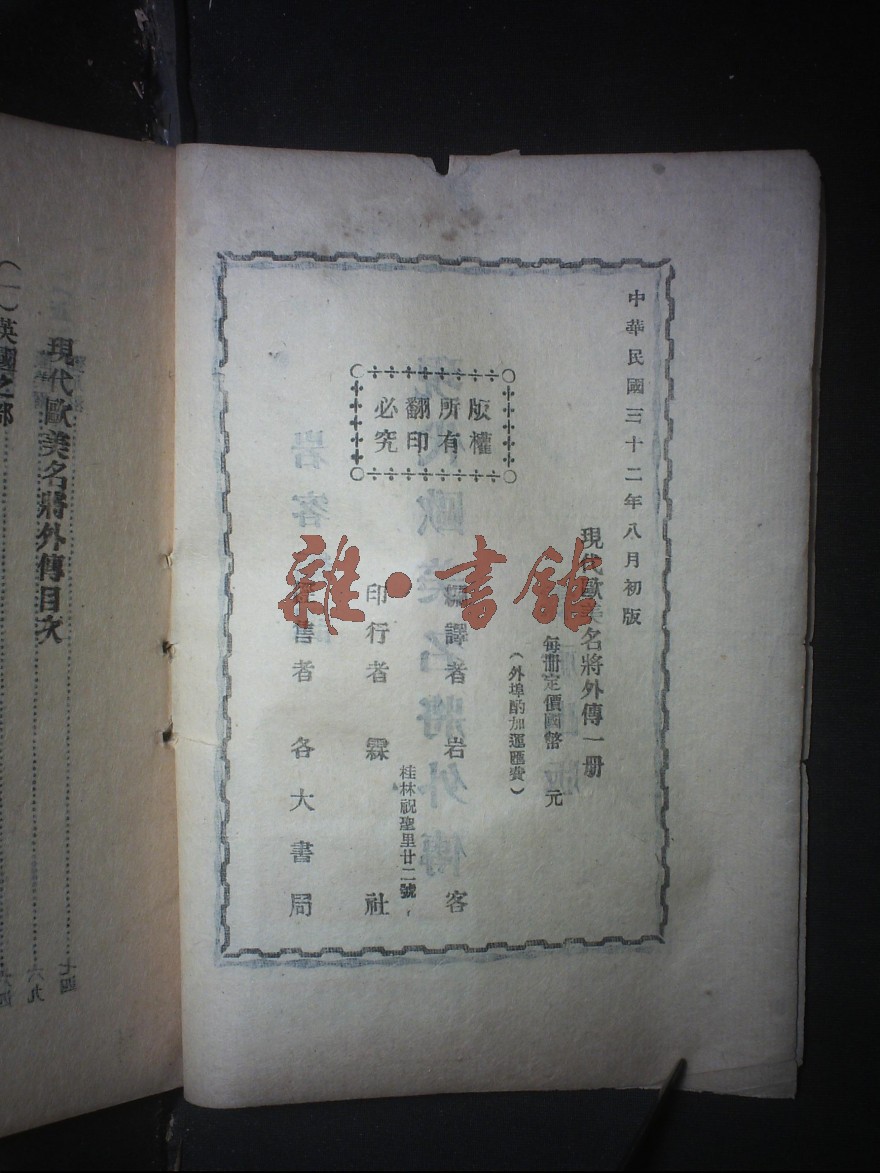 中華民國三十二年八月初版
現代歐美名將外傳一册
每册定價國幣 元
（外埠酌加運匯費）
版權
所有
翻印
必究
編譯者 岩客
桂林祝聖里廿二號
印行者 霖社
售者 各大書局
雜·書館
現代歐美名將外傳目次
（一）英國之部